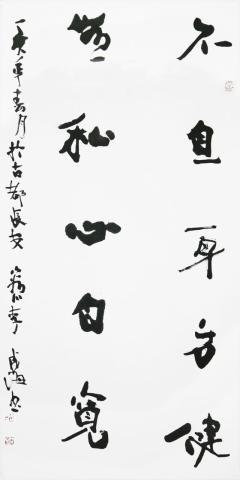 不息身方健
無私心自寬
亥年春月於古都長安